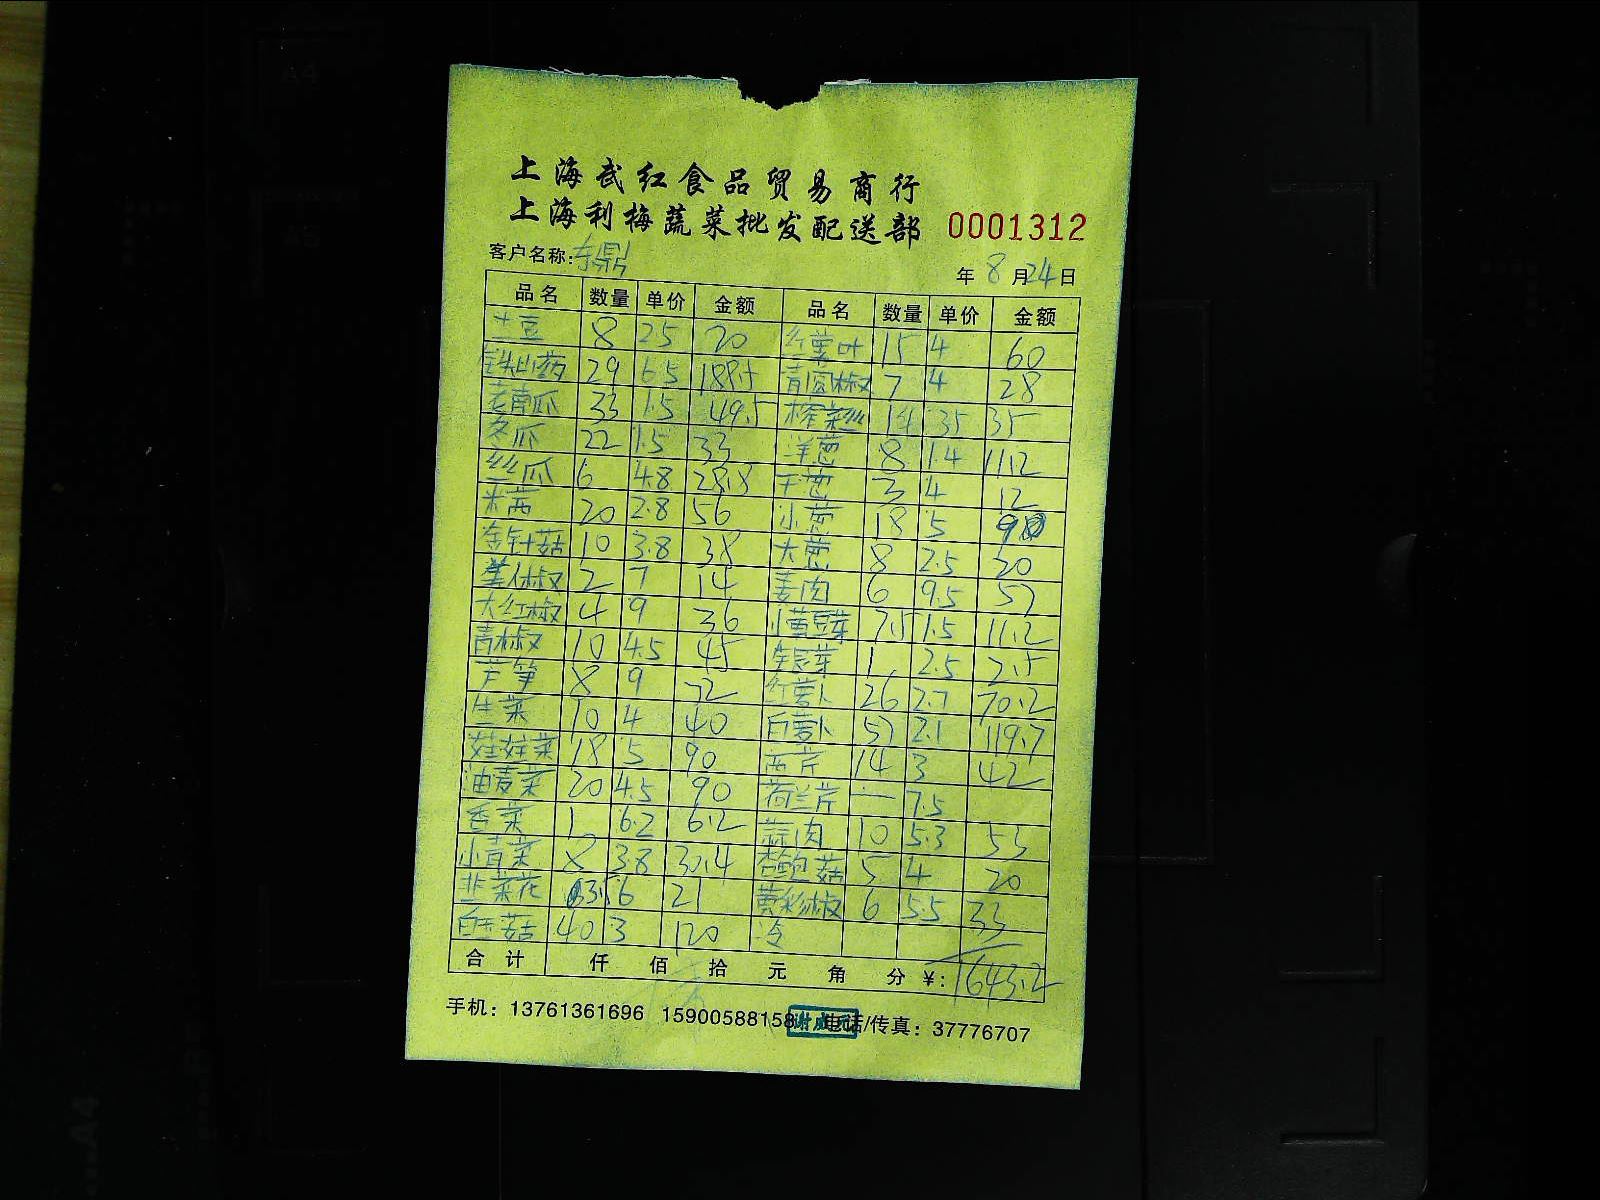 上海武红食品贸易商行
上海利梅蔬菜批发配送部 0001312
客户名称:东鼎 年 8 月 24 日
品名 数量 单价 金额 品名 数量 单价 金额
土豆 8 2.5 20 红薯叶 15 4 60
铁山药 29 6.5 188.5 青圆椒 7 4 28
老南瓜 33 1.5 49.5 榨菜丝 14 35 35
冬瓜 22 1.5 33 洋葱 8 1.4 11.2
丝瓜 6 4.8 28.8 干葱 3 4 12
米苋 20 2.8 56 小葱 18 5 90
金针菇 10 3.8 38 大葱 8 2.5 20
美人椒 2 7 14 姜肉 6 9.5 57
大红椒 4 9 36 小黄豆芽 7.5 1.5 11.2
青椒 10 4.5 45 豆芽 1 2.5 2.5
芦笋 8 9 72 红萝卜 26 2.7 70.2
生菜 10 4 40 白萝卜 57 2.1 119.7
娃娃菜 18 5 90 西芹 14 3 42
油麦菜 20 4.5 90 荷兰芹 一 7.5
香菜 1 6.2 6.2 蒜肉 10 5.3 53
小青菜 8 3.8 30.4 杏鲍菇 5 4 20
韭菜花 3.5 6 21 黄彩椒 6 5.5 33
白玉菇 40 3 120 冷
合计 仟 佰 拾 元 角 分 ¥: 1643.2
手机: 13761361696 15900588158 电话/传真: 37776707